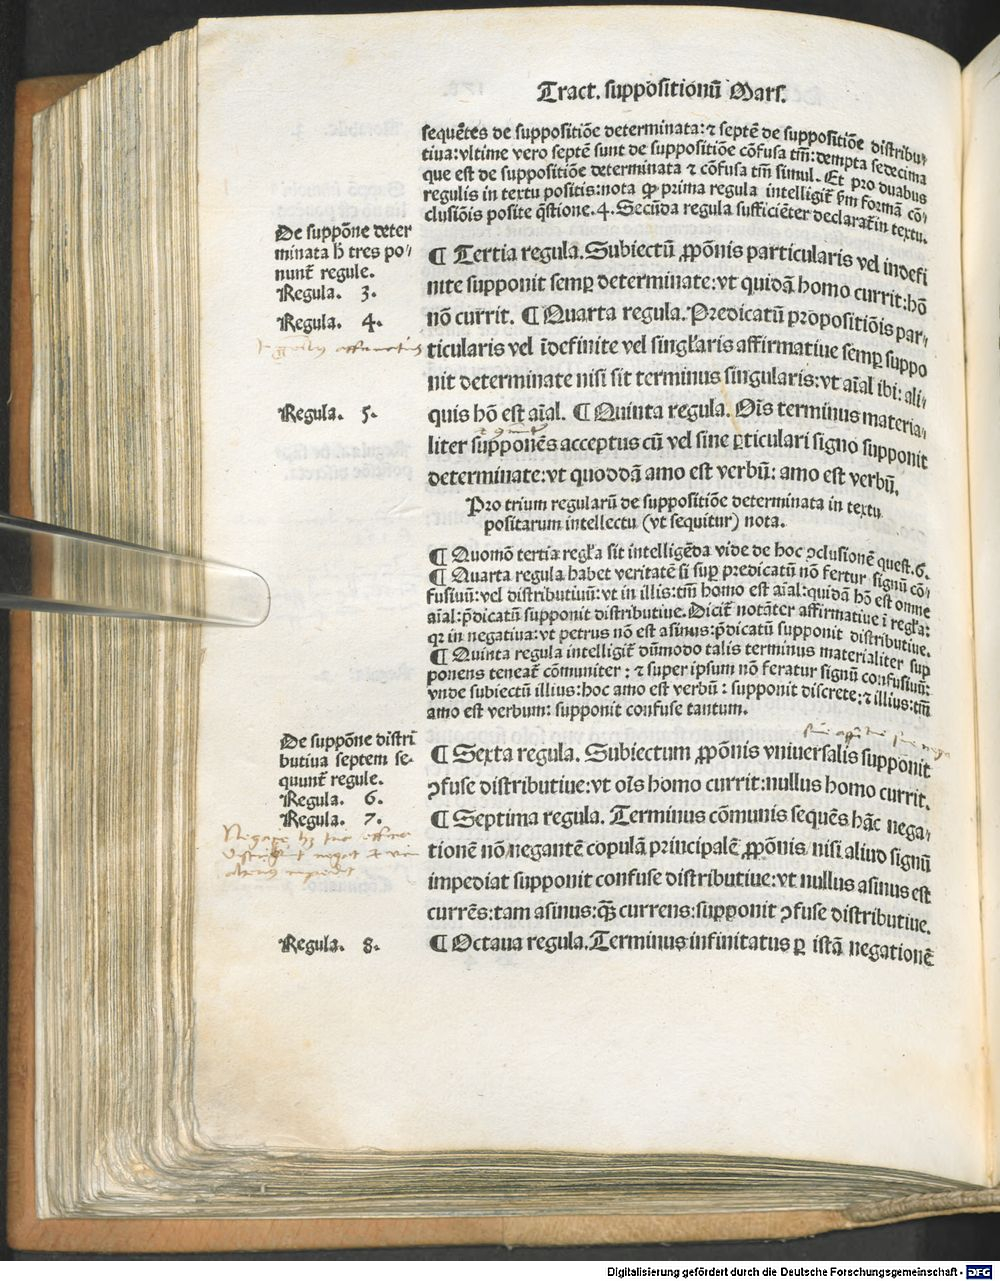 Tract. suppositionū Mars.
sequētes de suppositiōe determinata: ⁊ septē de suppositiōe distribu/
tiua: vltime vero septē sunt de suppositiōe cōfusa tm̄: dempta sedecima
que est de suppositiōe determinata ⁊ cōfusa tm̄ simul. Et pro duabus
regulis in textu positis: nota ꝙ prima regula intelligit̄ ẜm formā cō/
clusiōis posite q̄stione. 4. Secūda regula sufficiēter declarat̄ in textu.
De suppōne deter
minata h̄ tres po/
nunt̄ regule.
Regula. 3.
¶ Tertia regula. Subiectū ꝓpōnis particularis vel indefi
nite supponit semꝑ determinate: vt quidā homo currit: hō
Regula. 4.
nō currit. ¶ Quarta regula. Predicatū propositiōis par/
ticularis vel īdefinite vel singĺaris affirmatiue semꝑ suppo
nit determinate nisi sit terminus singularis: vt aīal ibi: ali/
Regula. 5.
quis hō est aīal. ¶ Quinta regula. Oīs terminus materia/
liter supponēs acceptus cū vel sine ꝑticulari signo supponit
determinate: vt quoddā amo est verbū: amo est verbū.
Pro trium regularū de suppositiōe determinata in textu
positarum intellectu (vt sequitur) nota.
¶ Quomō tertia regĺa sit intelligēda vide de hoc ↄclusionē quest. 6.
¶ Quarta regula habet veritatē si suꝑ predicatū nō fertur signū cō/
fusiuū: vel distributiuū: vt in illis: tm̄ homo est aīal: quidā hō est omne
aīal: p̄dicatū supponit distributiue. Dicit̄ notāter affirmatiue ī regĺa:
qꝛ in negatiua: vt petrus nō est asinus: p̄dicatū supponit distributiue.
¶ Quinta regula intelligit̄ dūmodo talis terminus materialiter sup
ponens teneat̄ cōmuniter: ⁊ super ipsum nō feratur signū confusiuū:
vnde subiectū illius: hoc amo est verbū: supponit discrete: ⁊ illius: tm̄
amo est verbum: supponit confuse tantum.
De suppōne distri
butiua septem se-
quunt̄ regule.
Regula. 6.
¶ Sexta regula. Subiectum ꝓpōnis vniuersalis supponit
ↄfuse distributiue: vt oīs homo currit: nullus homo currit.
Regula. 7.
¶ Septima regula. Terminus cōmunis sequēs hāc nega/
tionē nō negantē copulā principalē ꝓpōnis nisi aliud signū
impediat supponit confuse distributiue: vt nullus asinus est
currēs: tam asinus: qꝫ̄ currens: supponit ↄfuse distributiue.
Regula. 8.
¶ Octaua regula. Terminus infinitatus ꝑ istā negationē
Digitalisierung gefördert durch die Deutsche Forschungsgemeinschaft - DFG